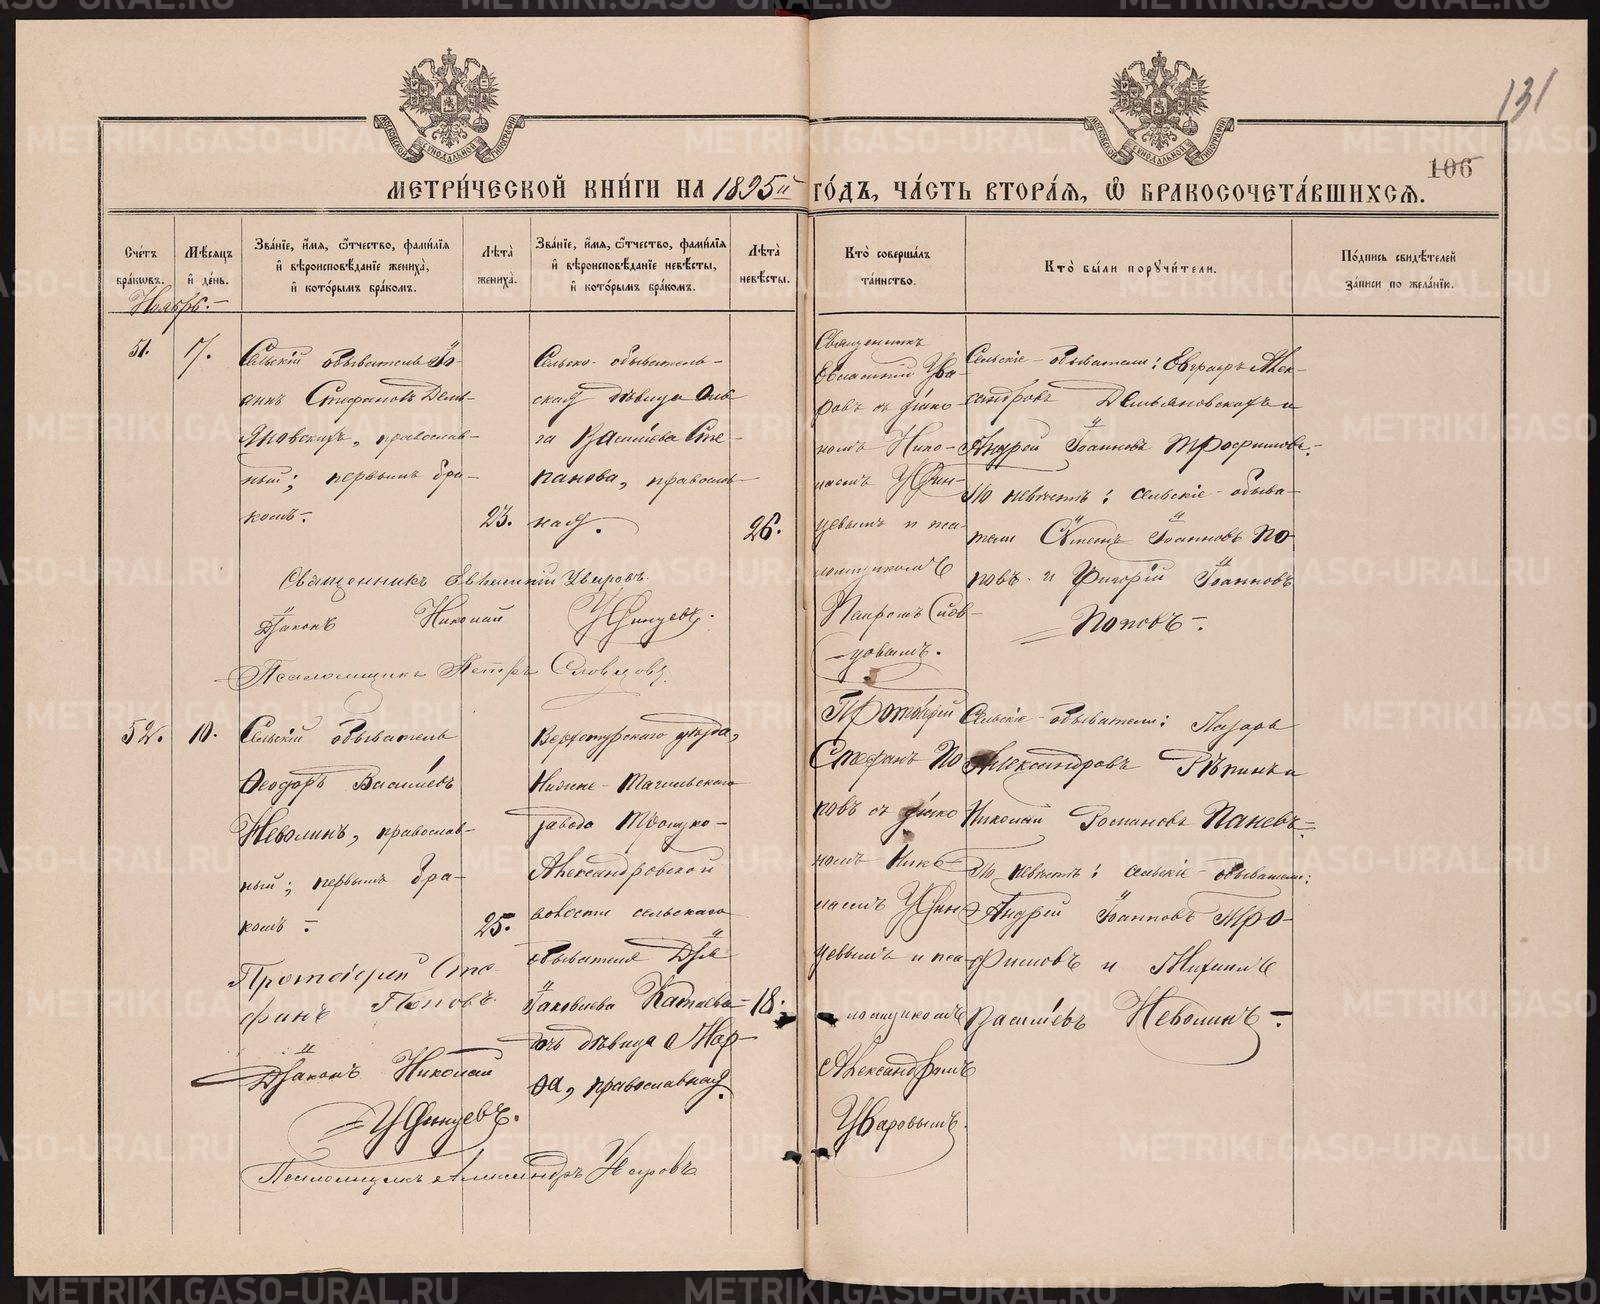 131
106
МОСКОВСКОЙ СѴНОДАЛЬНОЙ ТИПОГРАФІИ
МОСКОВСКОЙ СѴНОДАЛЬНОЙ ТИПОГРАФІИ
МЕТРИ́ЧЕСКОЙ КНИ́ГИ НА 1895й ГО́ДЪ, ЧА́СТЬ ВТОРА́Я, Ѽ БРАКОСОЧЕТА́ВШИХСЯ.
Сче́тъ бра́кѡвъ.
Мѣ́сяцъ и҆ де́нь.
Зва́нїе, и҆́мя, ѻ҆́тчество, фами́лїя
и҆ вѣроисповѣ́данїе жениха̀,
и҆ кото́рымъ бра́комъ.
Лѣ́та жениха̀.
Зва́нїе, и҆́мя, ѻ҆́тчество, фами́лїя
и҆ вѣроисповѣ́данїе невѣ́сты,
и҆ кото́рымъ бра́комъ.
Лѣ́та невѣ́сты.
Кто̀ соверша́лъ
та́инство.
Кто̀ бы́ли порꙋчи́тели.
По́дпись свидѣ́телей
за́писи по жела́нїю.
Ноябрь.-
51.
17.
Сельскій обыватель Іо-
аннъ Стефановъ Демь-
яновскихъ, православ-
ный; первымъ бра-
комъ.-
23.
Сельско-обыватель-
ская дѣвица Оль-
га Василіева Сте-
панова, православ-
ная.
26.
Священникъ
Евлампій Ува-
ровъ съ діако-
номъ Нико-
лаемъ Удин-
цевымъ и пса-
ломщикомъ
Петромъ Слов-
цовымъ.
Сельскіе обыватели: Евграфъ Алек-
сандровъ Демьяновскихъ и
Андрей Іоанновъ Трофимовъ.
По невѣстѣ: сельскіе обыва-
тели Іоанновъ По-
повъ и Григорій Іоанновъ
Поповъ-.
Священникъ Евлампій Уваровъ.
Діаконъ Николай Удинцевъ.
Псаломщикъ Петръ Словцовъ.
52.
10.
Сельскій обыватель
Ѳеодоръ Василіевъ
Неволинъ, православ-
ный; первымъ бра-
комъ-.
25.
Верхотурскаго уѣзда,
Нижне-Тагильскаго
завода Троицко-
Александровской
волости сельскаго
обывателя
Іаковлева Катаева
дочь дѣвица Мар-
ѳа, православная.
18.
Протоіерей
Стефанъ По-
повъ съ діако-
номъ Нико-
лаемъ Удин-
цевымъ и пса-
ломщикомъ
Александромъ
Уваровымъ.
Сельскіе обыватели: Лазарь
Александровъ Рѣпинъ и
Николай Романовъ Паневъ.
По невѣстѣ: сельскіе обыватели:
Андрей Іоанновъ Тро-
фимовъ и Михаилъ
Василіевъ Неволинъ-.
Протоіерей Сте-
фанъ Поповъ.
Діаконъ Николай
Удинцевъ.
Псаломщикъ Александръ Уваровъ
METRIKI.GASO-URAL.RU